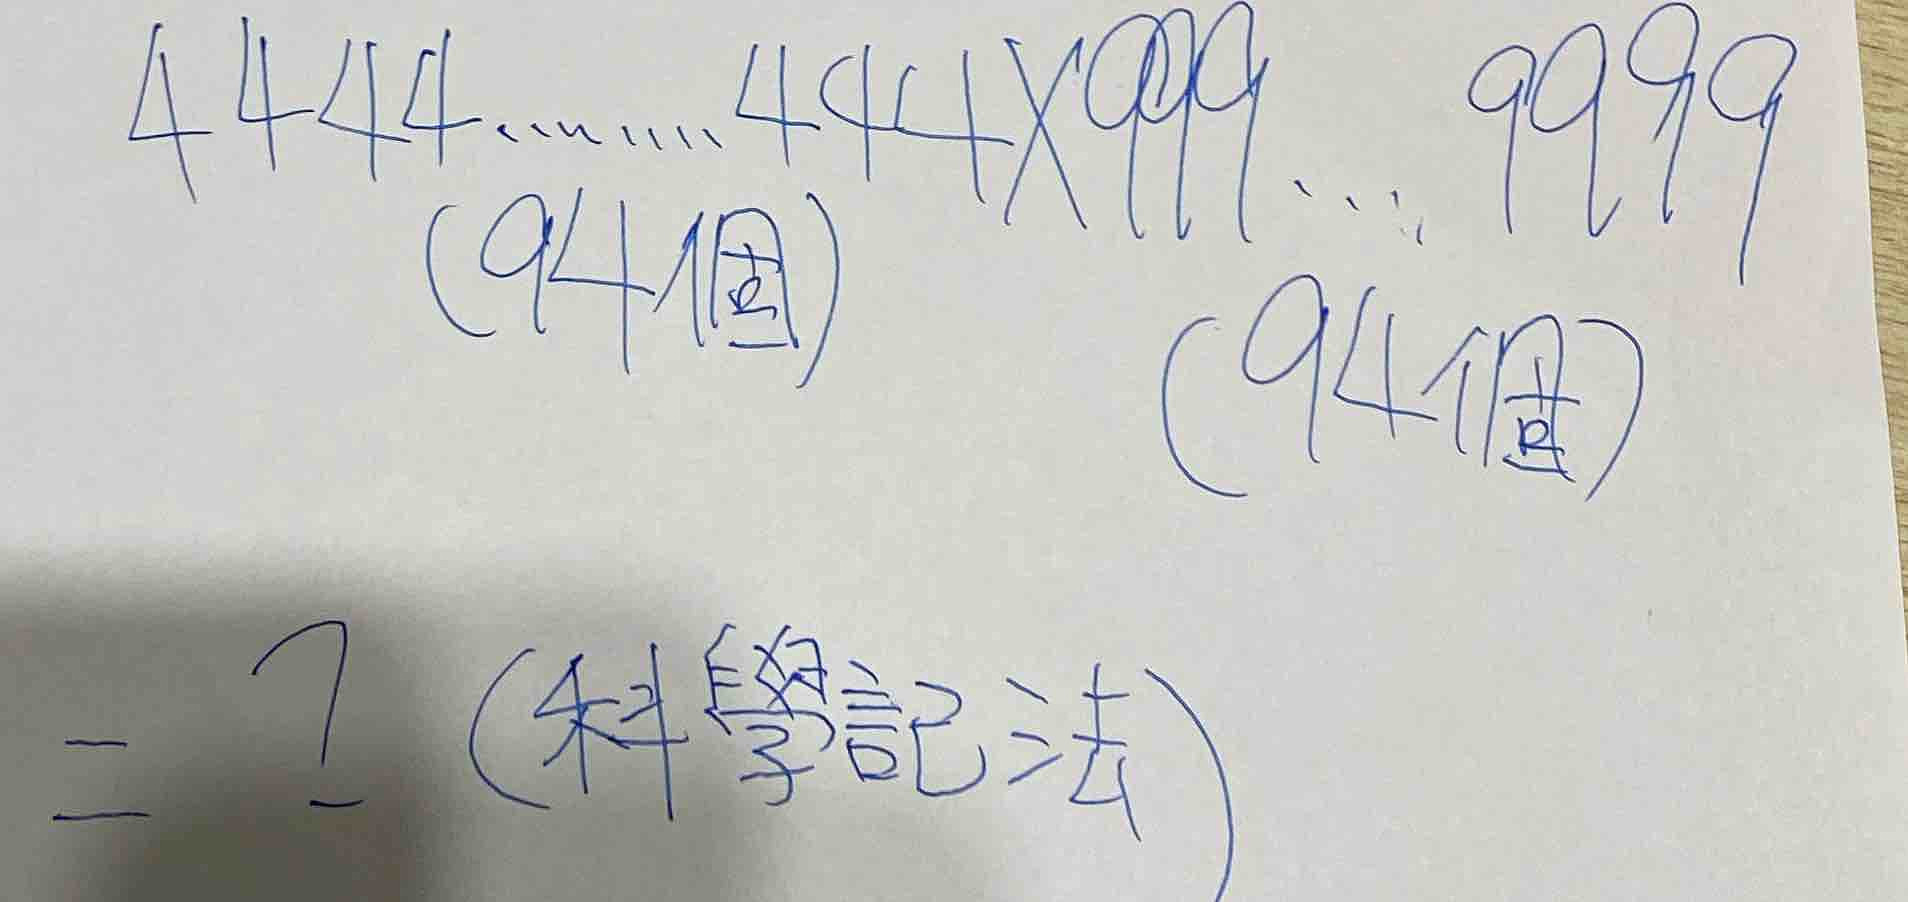 4444........444×999...9999
(94個)
(94個)
=?(科學記法)